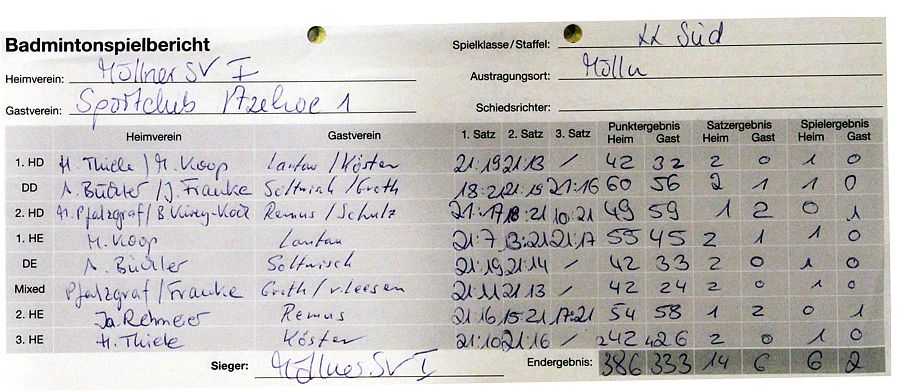 Badmintonspielbericht
Spielklasse/Staffel: LL Süd
Heimverein: Möllner SV I
Austragungsort: Mölln
Gastverein: Sportclub Itzehoe 1
Schiedsrichter:
Heimverein Gastverein 1. Satz 2. Satz 3. Satz Punktergebnis Heim Gast Satzergebnis Heim Gast Spielergebnis Heim Gast
1. HD H. Thiele / M. Koop Lantau / Kösten 21:19 21:13 / 42 32 2 0 1 0
DD A. Büchler / J. Franke Soltwisch / Groth 18:21 21:19 21:16 60 56 2 1 1 0
2. HD M. Pfalzgraf / B Remus / Schulz 21:17 18:21 10:21 49 59 1 2 0 1
1. HE M. Koop Lantau 21:7 13:21 21:17 55 45 2 1 1 0
DE A. Büchler Soltwisch 21:19 21:14 / 42 33 2 0 1 0
Mixed Pfalzgraf / Franke Groth / v. Leesen 21:11 21:13 / 42 24 2 0 1 0
2. HE Ja. Rehmeier Remus 21:16 15:21 17:21 54 58 1 2 0 1
3. HE H. Thiele Kösten 21:10 21:16 / 42 26 2 0 1 0
Sieger: Möllner SV I Endergebnis: 386 333 14 6 6 2